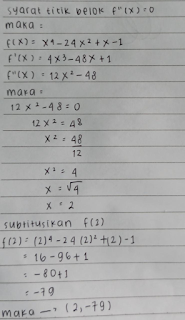 syarat titik belok f"(x) = 0
maka :
f(x) = x⁴ - 24x² + x - 1
f'(x) = 4x³ - 48x + 1
f"(x) = 12x² - 48
maka :
12x² - 48 = 0
12x² = 48
x² = 48/12
x² = 4
x = √4
x = 2
subtitusikan f(2)
f(2) = (2)⁴ - 24(2)² + (2) - 1
= 16 - 96 + 1
= -80 + 1
= -79
maka → (2, -79)